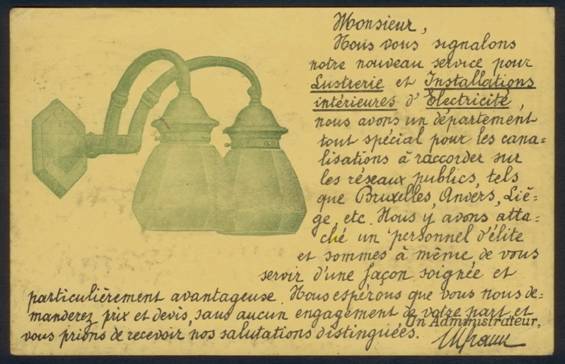 Monsieur,
Nous vous signalons
notre nouveau service pour
Lustrerie et Installations
intérieures d'Electricité,
nous avons un département
tout spécial pour les cana=
lisations à raccorder sur
les réseaux publics, tels
que Bruxelles, Anvers, Liè=
ge, etc. Nous y avons atta=
ché un personnel d'élite
et sommes à même de vous
servir d'une façon soignée et
particulièrement avantageuse. Nous espérons que vous nous de=
manderez prix et devis, sans aucun engagement de votre part et
vous prions de recevoir nos salutations distinguées.
Un Administrateur,